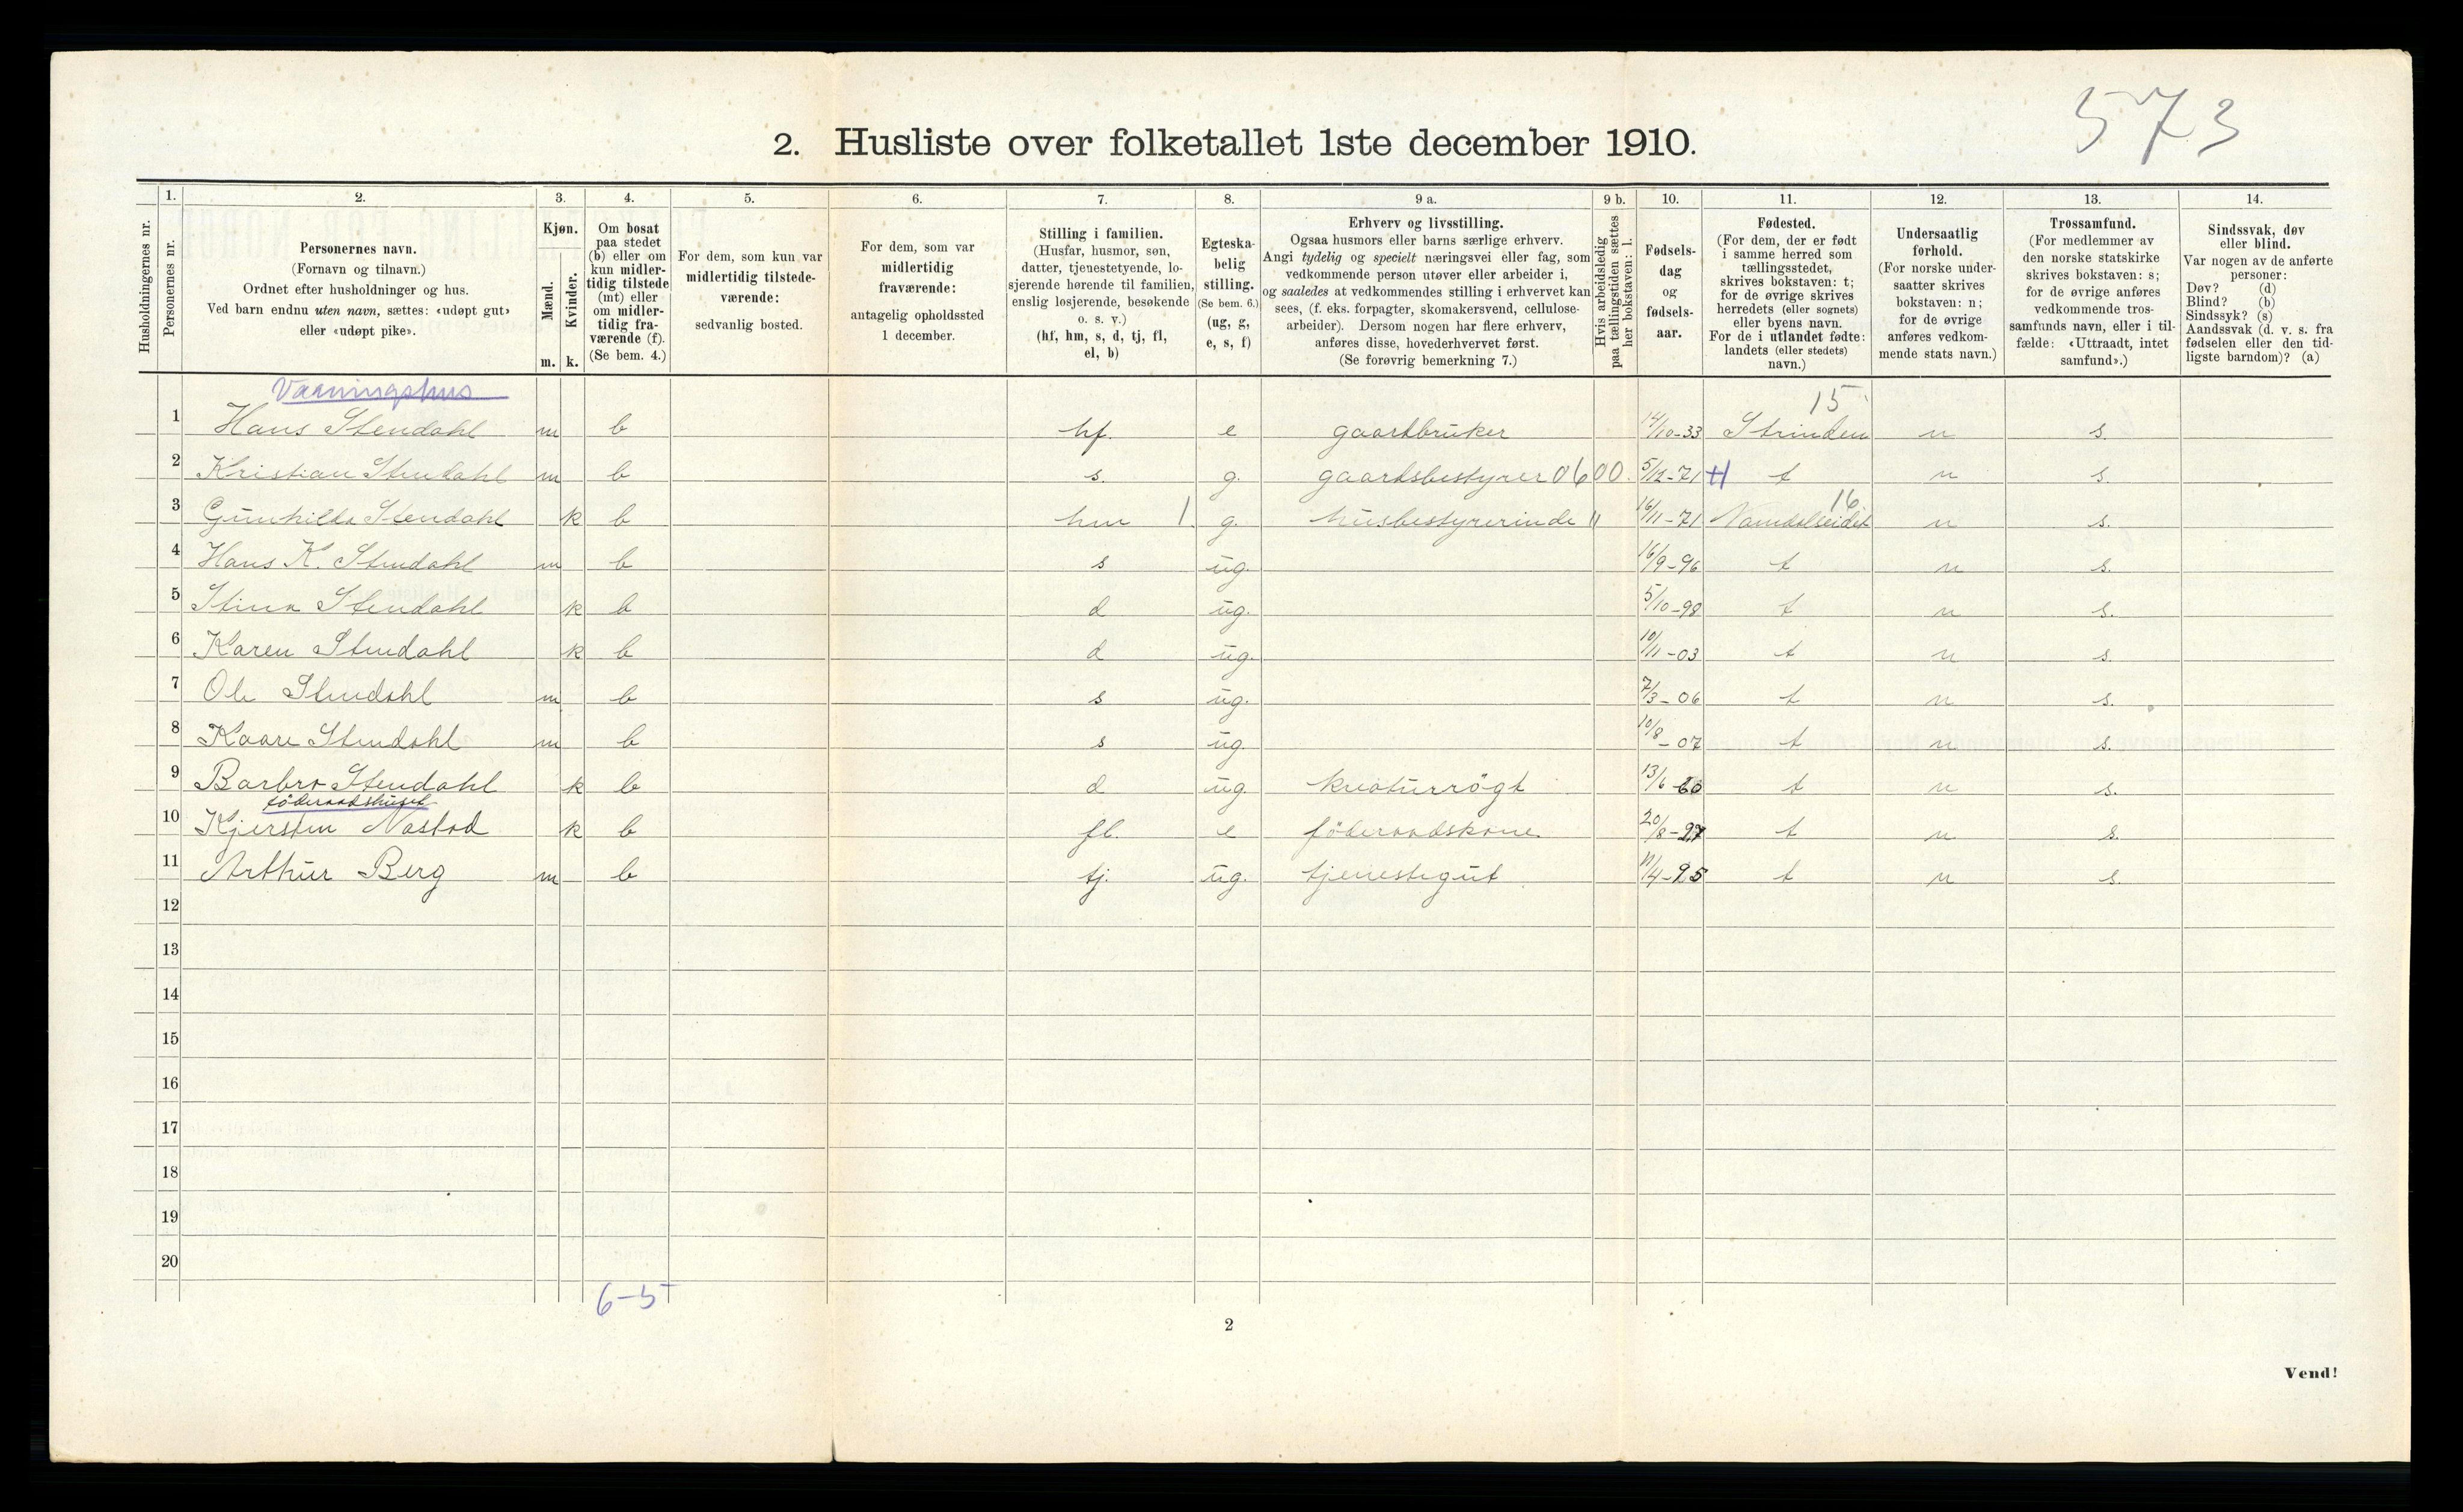 573
2. Husliste over folketallet 1ste december 1910.
Husholdningernes nr.
1. Personernes nr.
2. Personernes navn.
(Fornavn og tilnavn.)
Ordnet efter husholdninger og hus.
Ved barn endnu uten navn, sættes: «udøpt gut»
eller «udøpt pike».
3. Kjøn.
Mænd. m.
Kvinder. k.
4. Om bosat
paa stedet
(b) eller om
kun midler-
tidig tilstede
(mt) eller
om midler-
tidig fra-
værende (f).
(Se bem. 4.)
5. For dem, som kun var
midlertidig tilstede-
værende:
sedvanlig bosted.
6. For dem, som var
midlertidig
fraværende:
antagelig opholdssted
1 december.
7. Stilling i familien.
(Husfar, husmor, søn,
datter, tjenestetyende, lo-
sjerende hørende til familien,
enslig losjerende, besøkende
o. s. v.)
(hf, hm, s, d, tj, fl,
el, b)
8. Egteska-
belig
stilling.
(Se bem. 6.)
(ug, g,
e, s, f)
9 a. Erhverv og livsstilling.
Ogsaa husmors eller barns særlige erhverv.
Angi tydelig og specielt næringsvei eller fag, som
vedkommende person utøver eller arbeider i,
og saaledes at vedkommendes stilling i erhvervet kan
sees, (f. eks. forpagter, skomakersvend, cellulose-
arbeider). Dersom nogen har flere erhverv,
anføres disse, hovederhvervet først.
(Se forøvrig bemerkning 7.)
9 b. Hvis arbeidsledig
paa tællingstiden sættes
her bokstaven: l.
10. Fødsels-
dag
og
fødsels-
aar.
11. Fødested.
(For dem, der er født
i samme herred som
tællingsstedet,
skrives bokstaven: t;
for de øvrige skrives
herredets (eller sognets)
eller byens navn.
For de i utlandet fødte:
landets (eller stedets)
navn.)
12. Undersaatlig
forhold.
(For norske under-
saatter skrives
bokstaven: n;
for de øvrige
anføres vedkom-
mende stats navn.)
13. Trossamfund.
(For medlemmer av
den norske statskirke
skrives bokstaven: s;
for de øvrige anføres
vedkommende tros-
samfunds navn, eller i til-
fælde: «Uttraadt, intet
samfund».)
14. Sindssvak, døv
eller blind.
Var nogen av de anførte
personer:
Døv? (d)
Blind? (b)
Sindssyk? (s)
Aandssvak (d. v. s. fra
fødselen eller den tid-
ligste barndom)? (a)
Vaaningshus
15
1 Hans Stendahl m b hf. e gaardbruker 14/10-33 Strinden n s.
2 Kristian Stendahl m b s. g. gaardsbestyrer 0600. 5/12-71 t n s.
16
3 Gunhilda Stendahl k b hm 1 g. husbestyrerinde " 16/11-71 Namdalseidet n s.
4 Hans K. Stendahl m b s ug. 16/9-96 t n s.
5 Stina Stendahl k b d ug. 5/10-98 t n s.
6 Karen Stendahl k b d ug. 10/11-03 t n s.
7 Ole Stendahl m b s ug. 7/3-06 t n s.
8 Kaare Stendahl m b s ug. 10/8-07 t n s.
9 Barbro Stendahl k b d ug. kreaturrögt 13/6-60 t n s.
föderaadshuset
10 Kjersten Nastad k b fl. e föderaadskone 20/8-27 t n s.
11 Arthur Berg m b tj. ug. tjenestegut 11/4-95 t n s.
12
13
14
15
16
17
18
19
20
6-5
2
Vend!